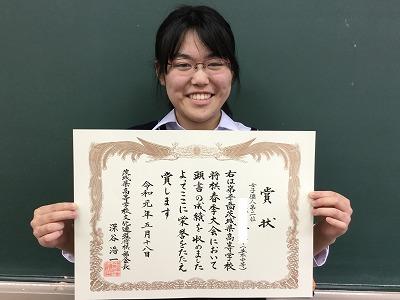 賞状
女子個人第三位
右は第季茨城県高等学校
将棋春季大会において
頭書の成績を収めました
よってここに栄誉をたたえ
賞します
令和元年五月十八日
茨城県高等学校文化連盟将棋部会長
深谷浩